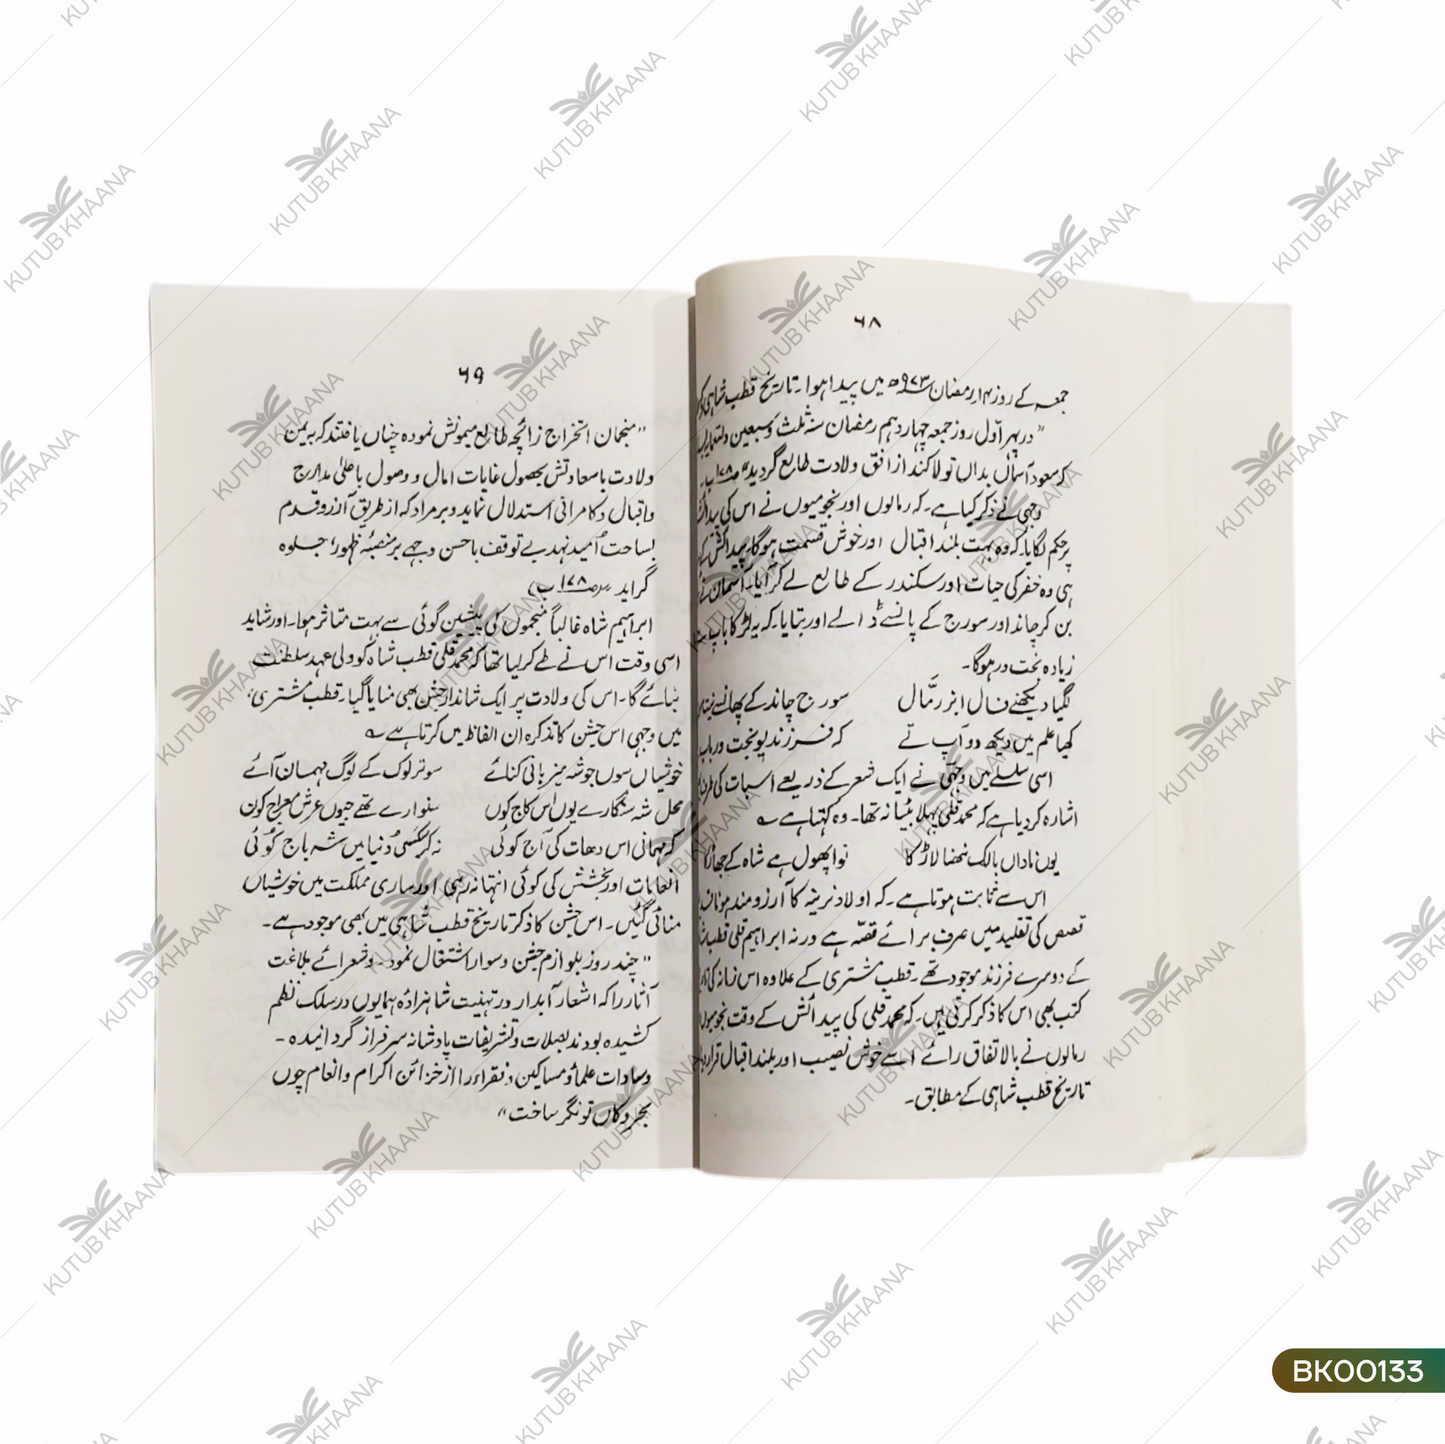 ۶۸
جمعہ کے روز ۱۴ رمضان ۹۷۳ھ میں پیدا ہوا۔ تاریخ قطب شاہی
"در پہر اول روز جمعہ چہار دہم رمضان سنہ ثلث و سبعین و تسعمایہ
کہ سعود آسماں بداں تولا کنند از افق ولادت طالع گردید" ص ۱۷۸ ب۔
وجہی نے ذکر کیا ہے۔ کہ رمالوں اور نجومیوں نے اس کی پیدائش
پر حکم لگایا۔ کہ وہ بہت بلند اقبال اور خوش قسمت ہوگا۔ پیدائش کے
ہی وہ خضر کی حیات اور سکندر کے طالع لے کر آیا۔ آسمان نے
بن کر چاند اور سورج کے پانسے ڈالے اور بتایا۔ کہ یہ لڑکا باپ سے
زیادہ بخت ور ہوگا۔
لگیا دیکھنے فال ابر رمّال سورج چاند کے پھانسے
کھیا علم میں دیکھ وو آپ تے کہ فرزند یو بخت ور باپ
اسی سلسلے میں وجہی نے ایک شعر کے ذریعے اسبات کی طرف
اشارہ کردیا ہے کہ محمد قلی پہلا بیٹا نہ تھا۔ وہ کہتا ہے ؎
یوں ناداں بالک ننھا لاڑ کا نوا پھول ہے شاہ کے جھاڑ کا
اس سے ثابت ہوتا ہے۔ کہ اولاد نرینہ کا آرزومند ہونا
قصص کی تقلید میں صرف برائے قصّہ ہے ورنہ ابراہیم قلی قطب شاہ
کے دوسرے فرزند موجود تھے۔ قطب مشتری کے علاوہ اس زمانہ کی
کتب بھی اس کا ذکر کرتی ہیں۔ کہ محمد قلی کی پیدائش کے وقت نجومیوں
رمالوں نے بالاتفاق رائے اسے خوش نصیب اور بلند اقبال قرار دیا
تاریخ قطب شاہی کے مطابق۔
۶۹
"منجمان استخراج زائچہ طالع میمونش نمودہ چناں یافتند کہ بریمن
ولادت باسعادتش بحصول غایات امال و وصول باعلیٰ مدارج
و اقبال و کامرانی استدلال نماید و ہر مراد کہ از طریق آرزو قدم
بساحت اُمید نہد بے توقف باحسن وجہے بر منصّہ ظہور جلوہ
گراید" (ص ۱۷۸ ب)
ابراہیم شاہ غالباً منجموں کی پیشین گوئی سے بہت متاثر ہوا۔ اور شاید
اسی وقت اس نے طے کرلیا تھا کہ محمد قلی قطب شاہ کو ولی عہد سلطنت
بنائے گا۔ اس کی ولادت پر ایک شاندار جشن بھی منایا گیا۔ قطب مشتری
میں وجہی اس جشن کا تذکرہ ان الفاظ میں کرتا ہے ؎
خوشیاں سوں جو شہ میزبانی کنائے سو تر لوک کے لوگ مہمان آئے
محل شہ سنگارے یوں اس کاج کوں سنوارے تھے جیوں عرش معراج کون
کہ مہمانی اس دھات کی آج کوئی نہ کر سکسی دنیا میں شہ باج کوئی
انعامات اور بخشش کی کوئی انتہا نہ رہی اور ساری مملکت میں خوشیاں
منائی گئیں۔ اس جشن کا ذکر تاریخ قطب شاہی میں بھی موجود ہے۔
"چند روز بلوازم جشن و سوار اشتغال نمود۔ و شعرائے بلاغت
آثار را کہ اشعار آبدار در تہنیت شاہزادہ ہمایوں در سلک نظم
کشیدہ بودند بصلات و تشریفات پادشانہ سرفراز گردانیدہ۔
و سادات علماؤ مساکین و فقراء را از خزائن اکرام و انعام چوں
بحر و کاں تونگر ساخت"
KUTUB KHAANA
BK00133